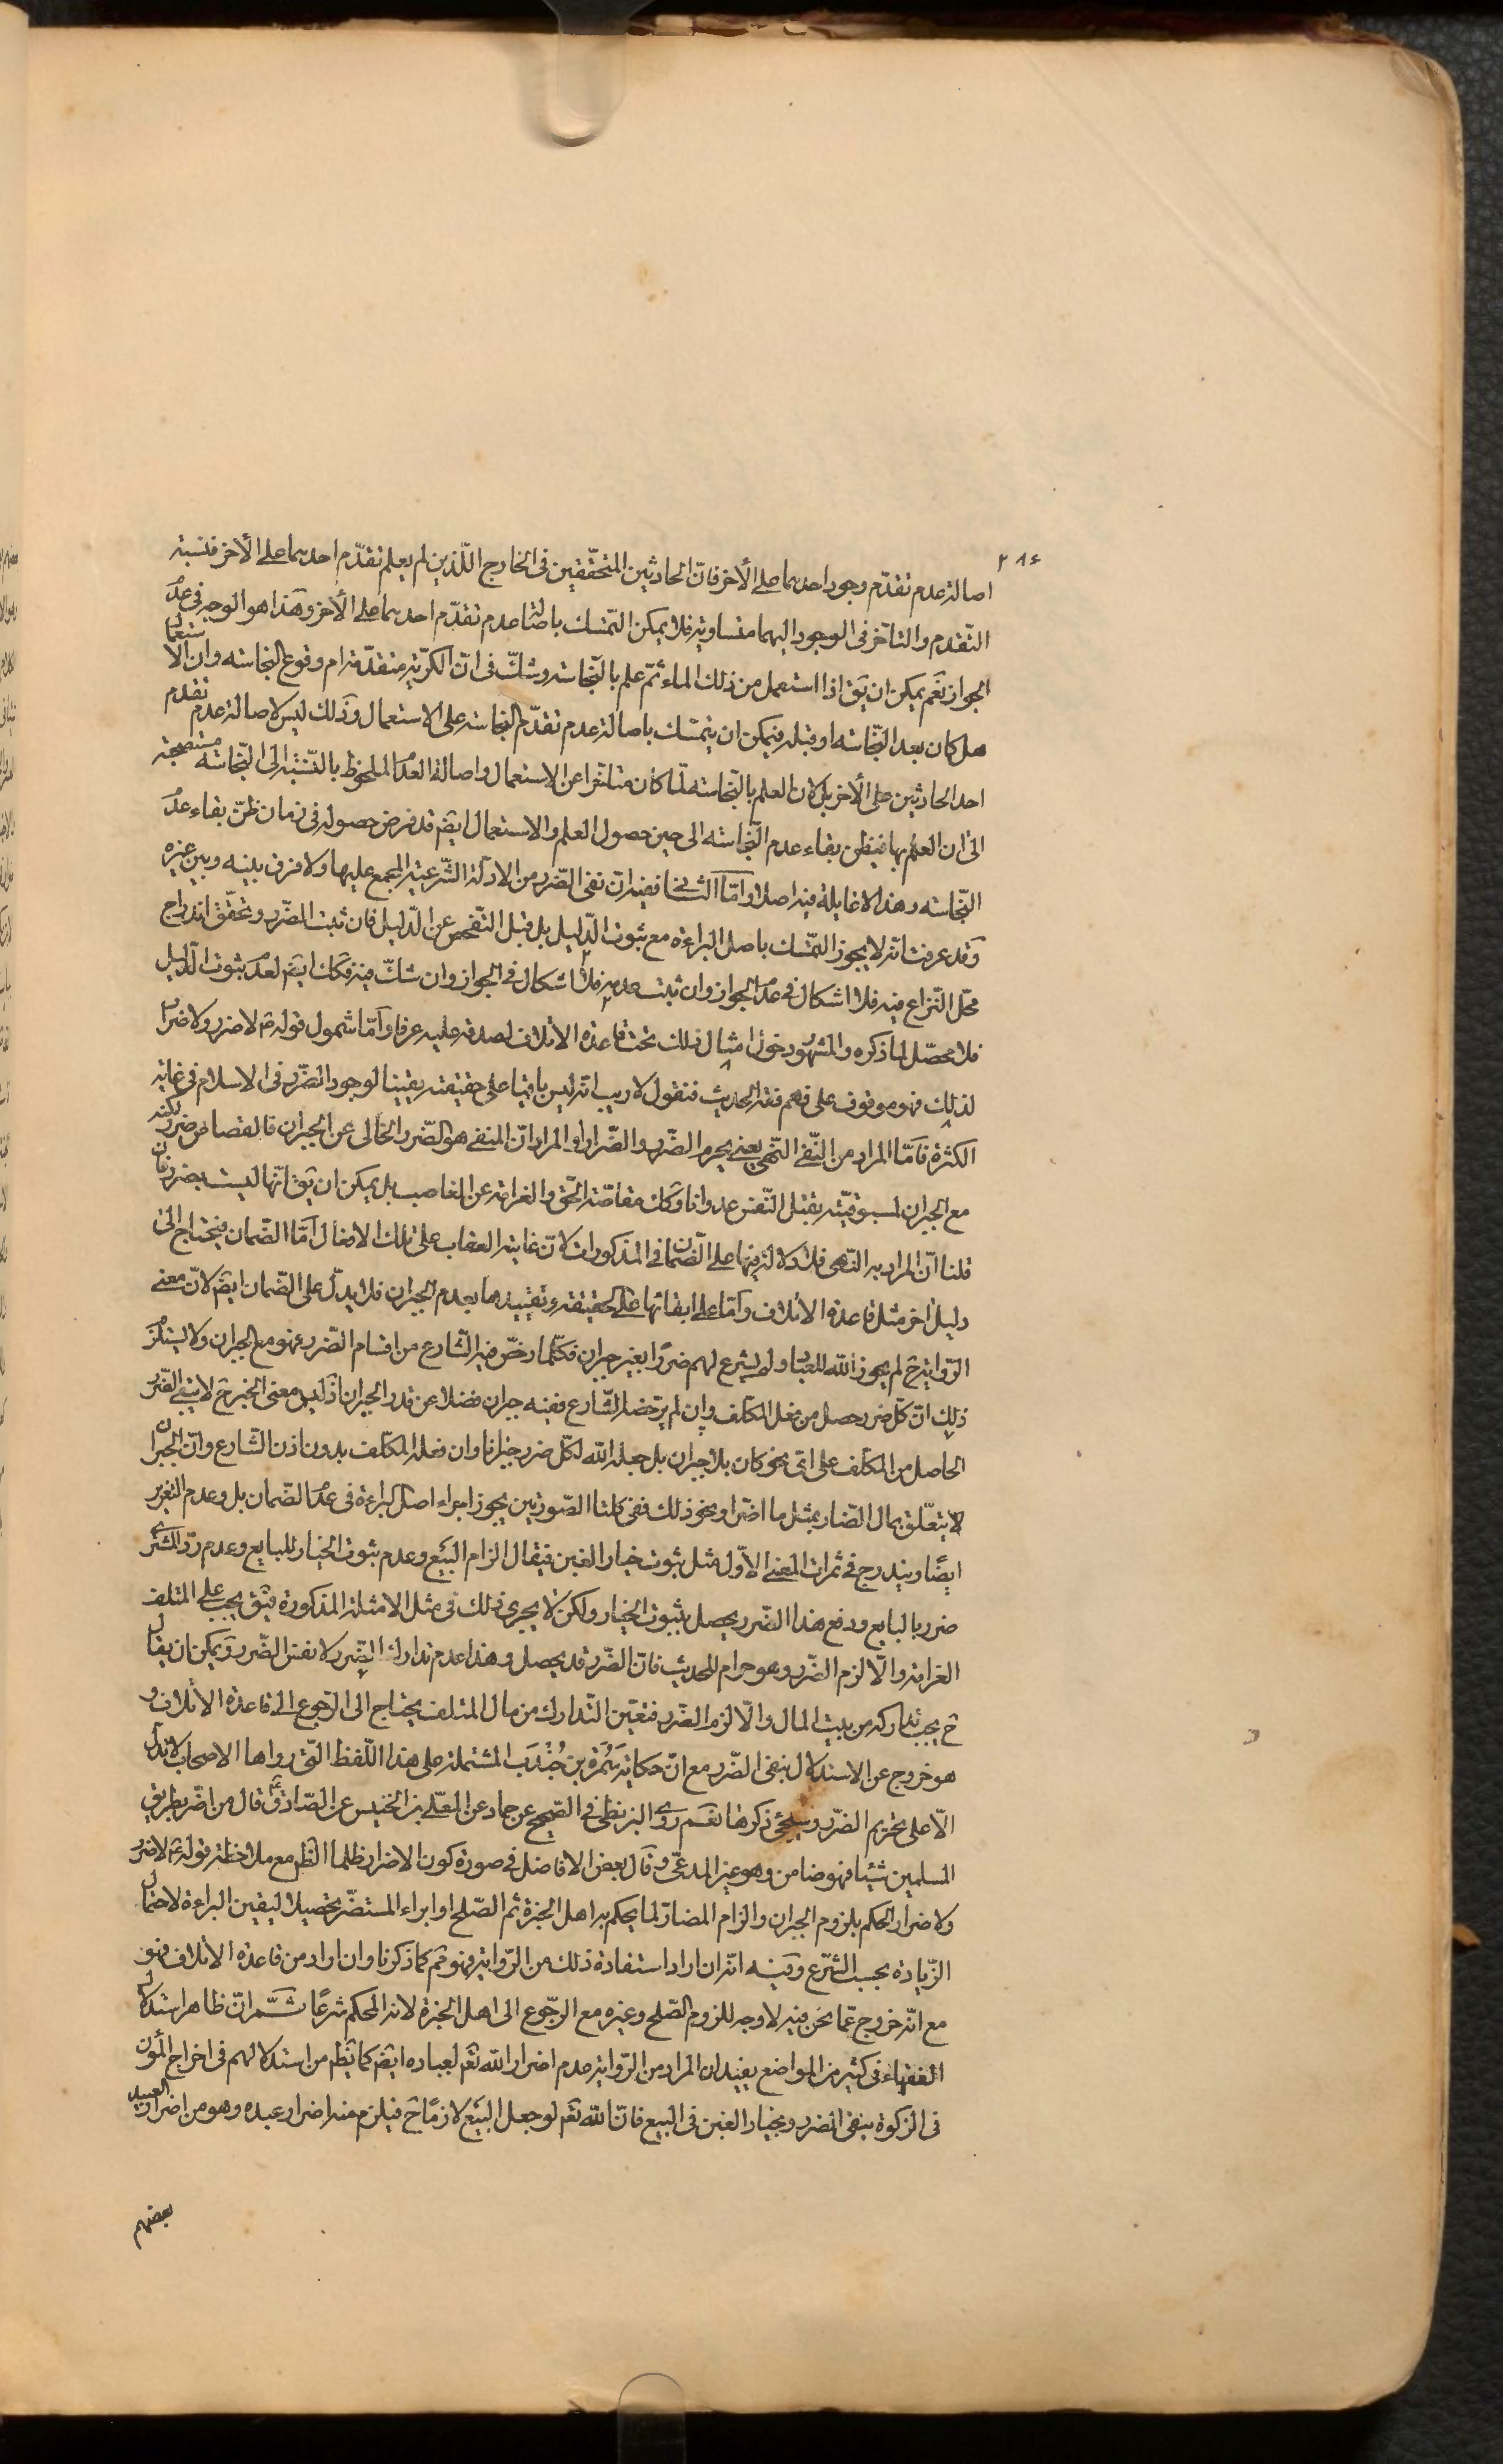 ٢٨٤
اصالة عدم تقدّم وجود احدهما على الأخر فانّ الحادثين المتحقّقين فى الخارج اللّذين لم يعلم تقدّم احدهما على الأخر فنسبة
التّقدم والتأخر فى الوجود اليهما متساوية فلا يمكن التمسّك باصالة عدم تقدّم احدهما على الأخر وهذا هو الوجه فى عدم
الجواز نعم يمكن ان يق اذا استعمل من ذلك الماء ثمّ علم بالنّجاسة وشكّ فى انّ الكرّية متقدّمة ام وقوع النجاسة وان الاستعمال
هل كان بعد النّجاسة او قبله فيمكن ان يتمسّك باصالة عدم تقدّم النجاسة على الاستعمال وذلك ليس لاصالة عدم تقدم
احد الحادثين على الأخر بل لان العلم بالنّجاسة لمّا كان متاخّرا عن الاستعمال واصالة العدم الملحوظ بالنّسبة الى النّجاسة مستصحبة
الى ان العلم بها فيظن بقاء عدم النّجاسة الى حين حصول العلم والاستعمال ايضم قد فرض حصوله فى زمان ظنّ بقاء عدم
النّجاسة وهذا لا غايلة فيه اصلا وامّا الثانى ففيه ان نفى الضّرر من الادلّة الشّرعية المجمع عليها ولا فرق بينه وبين غيره
وقد عرفت انّه لا يجوز التمسّك باصل البراءة مع ثبوت الدّليل بل قبل التفحّص عن الدّليل فان ثبت الضّرر وتحقّق اندراج
محلّ النّزاع فيه فلا اشكال فى عدم الجواز وان ثبت عدمه فلا اشكال فى الجواز وان شكّ فيه فكك ايضم لعدم ثبوت الدّليل
فلا محصّل لما ذكره والمشهور دخول امثال ذلك تحت قاعدة الاتلاف لصدقه عليه عرفا وامّا شمول قوله ع لا ضرر ولا ضرار
لذلك فهو موقوف على فهم فقه الحديث فنقول لا ريب انّه ليس باقيا على حقيقته يقينا لوجود الضّرر فى الاسلام فى غاية
الكثرة فامّا المراد من النّفى النّهى يعنى يحرم الضّرر والضّرار او المراد انّ المنفى هو الضّرر الخالى عن الجبران فالقصاص ضرر لكنه
مع الجبران لمسبوقيّته بقتل النّفس عدوانا وكك مقاصّة الحقّ والغرامة عن الغاصب بل يمكن ان يق انّها ليست بضرر فان
قلنا انّ المراد به النّهى فلا دلالة فيها على الضّمان فى المذكورات لانّ غاية العقاب على تلك الافعال امّا الضّمان فيحتاج الى
دليل اخر مثل قاعدة الاتلاف وامّا على ابقائها على الحقيقة وتقييدها بعدم الجبران فلا يدلّ على الضّمان ايضم لانّ معنى
الرّواية ح لم يجوز الله للعباد ولم يشرع لهم ضررًا بغير جبران فكلّما رخّص فيه الشّارع من اقسام الضّرر فهو مع الجبران ولا يستلزم
ذلك انّ كلّ ضرر حصل من فعل المكلّف وان لم يرتضه الشّارع ففيه جبران فضلا عن قدر الجبران اذ ليس معنى الخبر ح لا يبقى الضّرر
الحاصل من المكلّف على اىّ نحو كان بلا جبران بل جعل الله لكلّ ضرر جبرانا وان فعله المكلّف بدون اذن الشّارع وانّ الجبران
لا يتعلّق بمال الضّار بمثل ما اضرّ او نحو ذلك ففى كلتا الصّورتين يجوز اجراء اصل البراءة فى عدم الضّمان بل وعدم التعزير
ايضًا ويندرج فى ثمرات المعنى الاوّل مثل ثبوت خيار الغبن فيقال الزام البيع وعدم ثبوت الخيار للبايع وعدم ردّ المشترى
ضرر بالبايع ودفع هذا الضّرر يحصل بثبوت الخيار ولكن لا يجرى ذلك فى مثل الامثلة المذكورة فيق يجب على المتلف
الغرامة والّا لزم الضّرر وهو حرام للحديث فانّ الضّرر قد يحصل وهذا عدم تدارك الضّرر لا نفس الضّرر ويمكن ان يقال
ح يجب تداركه من بيت المال والّا لزم الضّرر فتعيّن التّدارك من مال المتلف يحتاج الى الرّجوع الى قاعدة الاتلاف و
هو خروج عن الاستدلال بنفى الضّرر مع انّ حكاية سَمُرَة بن جُنْدَب المشتملة على هذا اللّفظ الّتى رواها الاصحاب لا تدلّ
الّا على تحريم الضّرر وسيجئ ذكرها نعم روى البزنطى فى الصّحيح عن حماد عن المعلّى بن الخنيس عن الصّادق ع قال من اضرّ بطريق
المسلمين شيئا فهو ضامن وهو غير المدعّى وقال بعض الافاضل فى صورة كون الاضرار ظلما الظم مع ملاحظة قوله ع لا ضرر
ولا ضرار الحكم بلزوم الجبران والزام المضارّ لما يحكم به اهل الخبرة ثم الصّلح او ابراء المستضرّ تحصيلا ليقين البراءة لاحتمال
الزّيادة بحسب الشّرع وفيه انّه ان اراد استفادة ذلك من الرّواية فهو ثم كما ذكرنا وان اراد من قاعدة الاتلاف فهو
مع انّه خروج عمّا نحن فيه لا وجه للزوم الصّلح وغيره مع الرجّوع الى اهل الخبرة لانه المحكم شرعًا ثمّ انّ ظاهر استدلال
الفقهاء فى كثير من المواضع يفيد ان المراد من الرّواية عدم اضرار الله تعم لعباده ايضم كما يظم من استدلالهم فى اخراج المؤن
فى الزكوة بنفى الضّرر وبخيار الغبن فى البيع فانّ الله تعم لو جعل البيع لازمًا ح فيلزم منه اضرار عبده وهو من اضرار العبيد
بعضهم